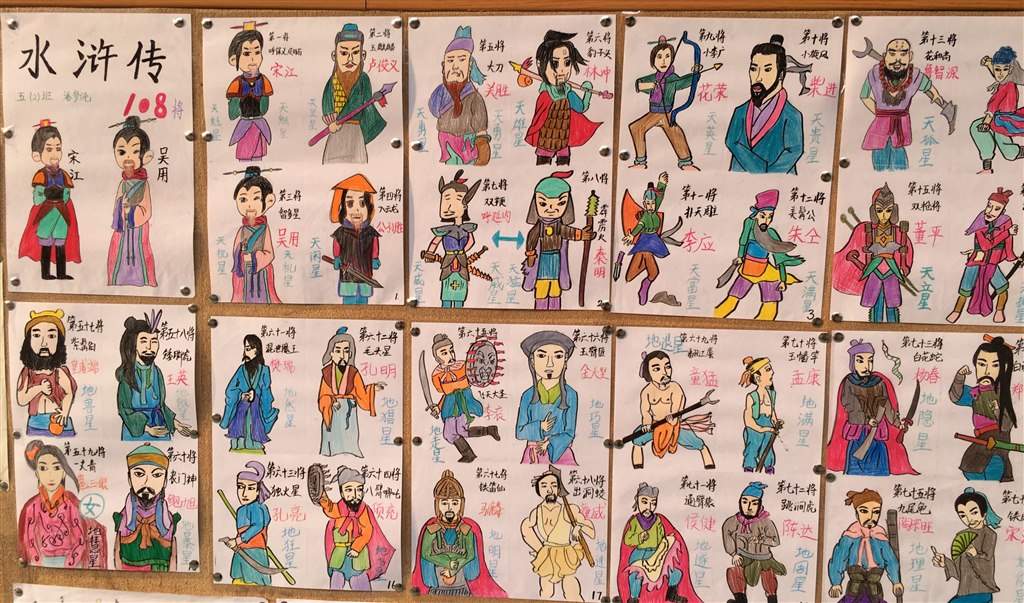 水浒传
五(2)班
108将
宋江
吴用
第一将
宋江
天魁星
第二将
玉麒麟
卢俊义
天罡星
第三将
智多星
吴用
天机星
第四将
入云龙
公孙胜
天闲星
1
第五将
大刀
关胜
天勇星
第六将
豹子头
林冲
天雄星
第七将
双鞭
呼延灼
天威星
第八将
霹雳火
秦明
天猛星
2
第九将
小李广
花荣
天英星
第十将
小旋风
柴进
天贵星
第十一将
扑天雕
李应
天富星
第十二将
美髯公
朱仝
天满星
3
第十三将
花和尚
鲁智深
天孤星
第十五将
双枪将
董平
天立星
第五十七将
紫髯伯
皇甫端
地兽星
第五十八将
矮脚虎
王英
第五十九将
一丈青
扈三娘
女
地慧星
丧门神
鲍旭
第六十一将
混世魔王
樊瑞
地然星
第六十二将
毛头星
孔明
地猖星
第六十三将
独火星
孔亮
地狂星
第六十四将
八臂哪吒
项充
16
第六十五将
飞天大圣
李衮
地走星
第六十六将
玉臂匠
金大坚
地巧星
第六十七将
铁笛仙
马麟
地明星
第六十八将
出洞蛟
童威
地进星
17
地退星
第六十九将
翻江蜃
童猛
第七十将
玉幡竿
孟康
地满星
第七十一将
通臂猿
侯健
地遂星
第七十二将
跳涧虎
陈达
地周星
第七十三将
白花蛇
杨春
地隐星
第七十五将
九尾龟
陶宗旺
地理星